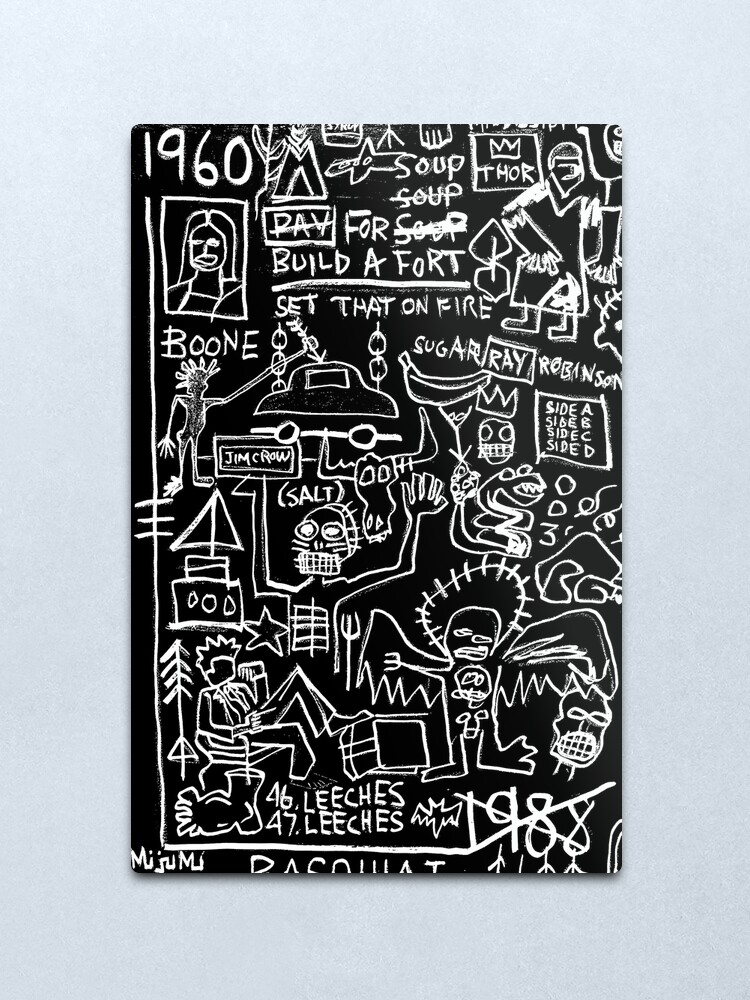 1960
SYRUP
MISSISSIPPI
SOUP
SOUP
PAY FOR SOUP
BUILD A FORT
SET THAT ON FIRE
THOR
BOONE
SUGAR RAY ROBINSON
SIDE A
SIDE B
SIDE C
SIDE D
JIM CROW
(SALT)
46. LEECHES
47. LEECHES
1988
MijuMi
BASQUIAT